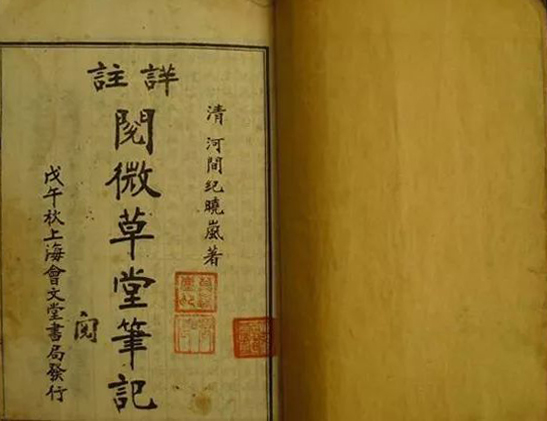 詳註
清 河間紀曉嵐著
閱微草堂筆記
閱
戊午秋上海會文堂書局發行